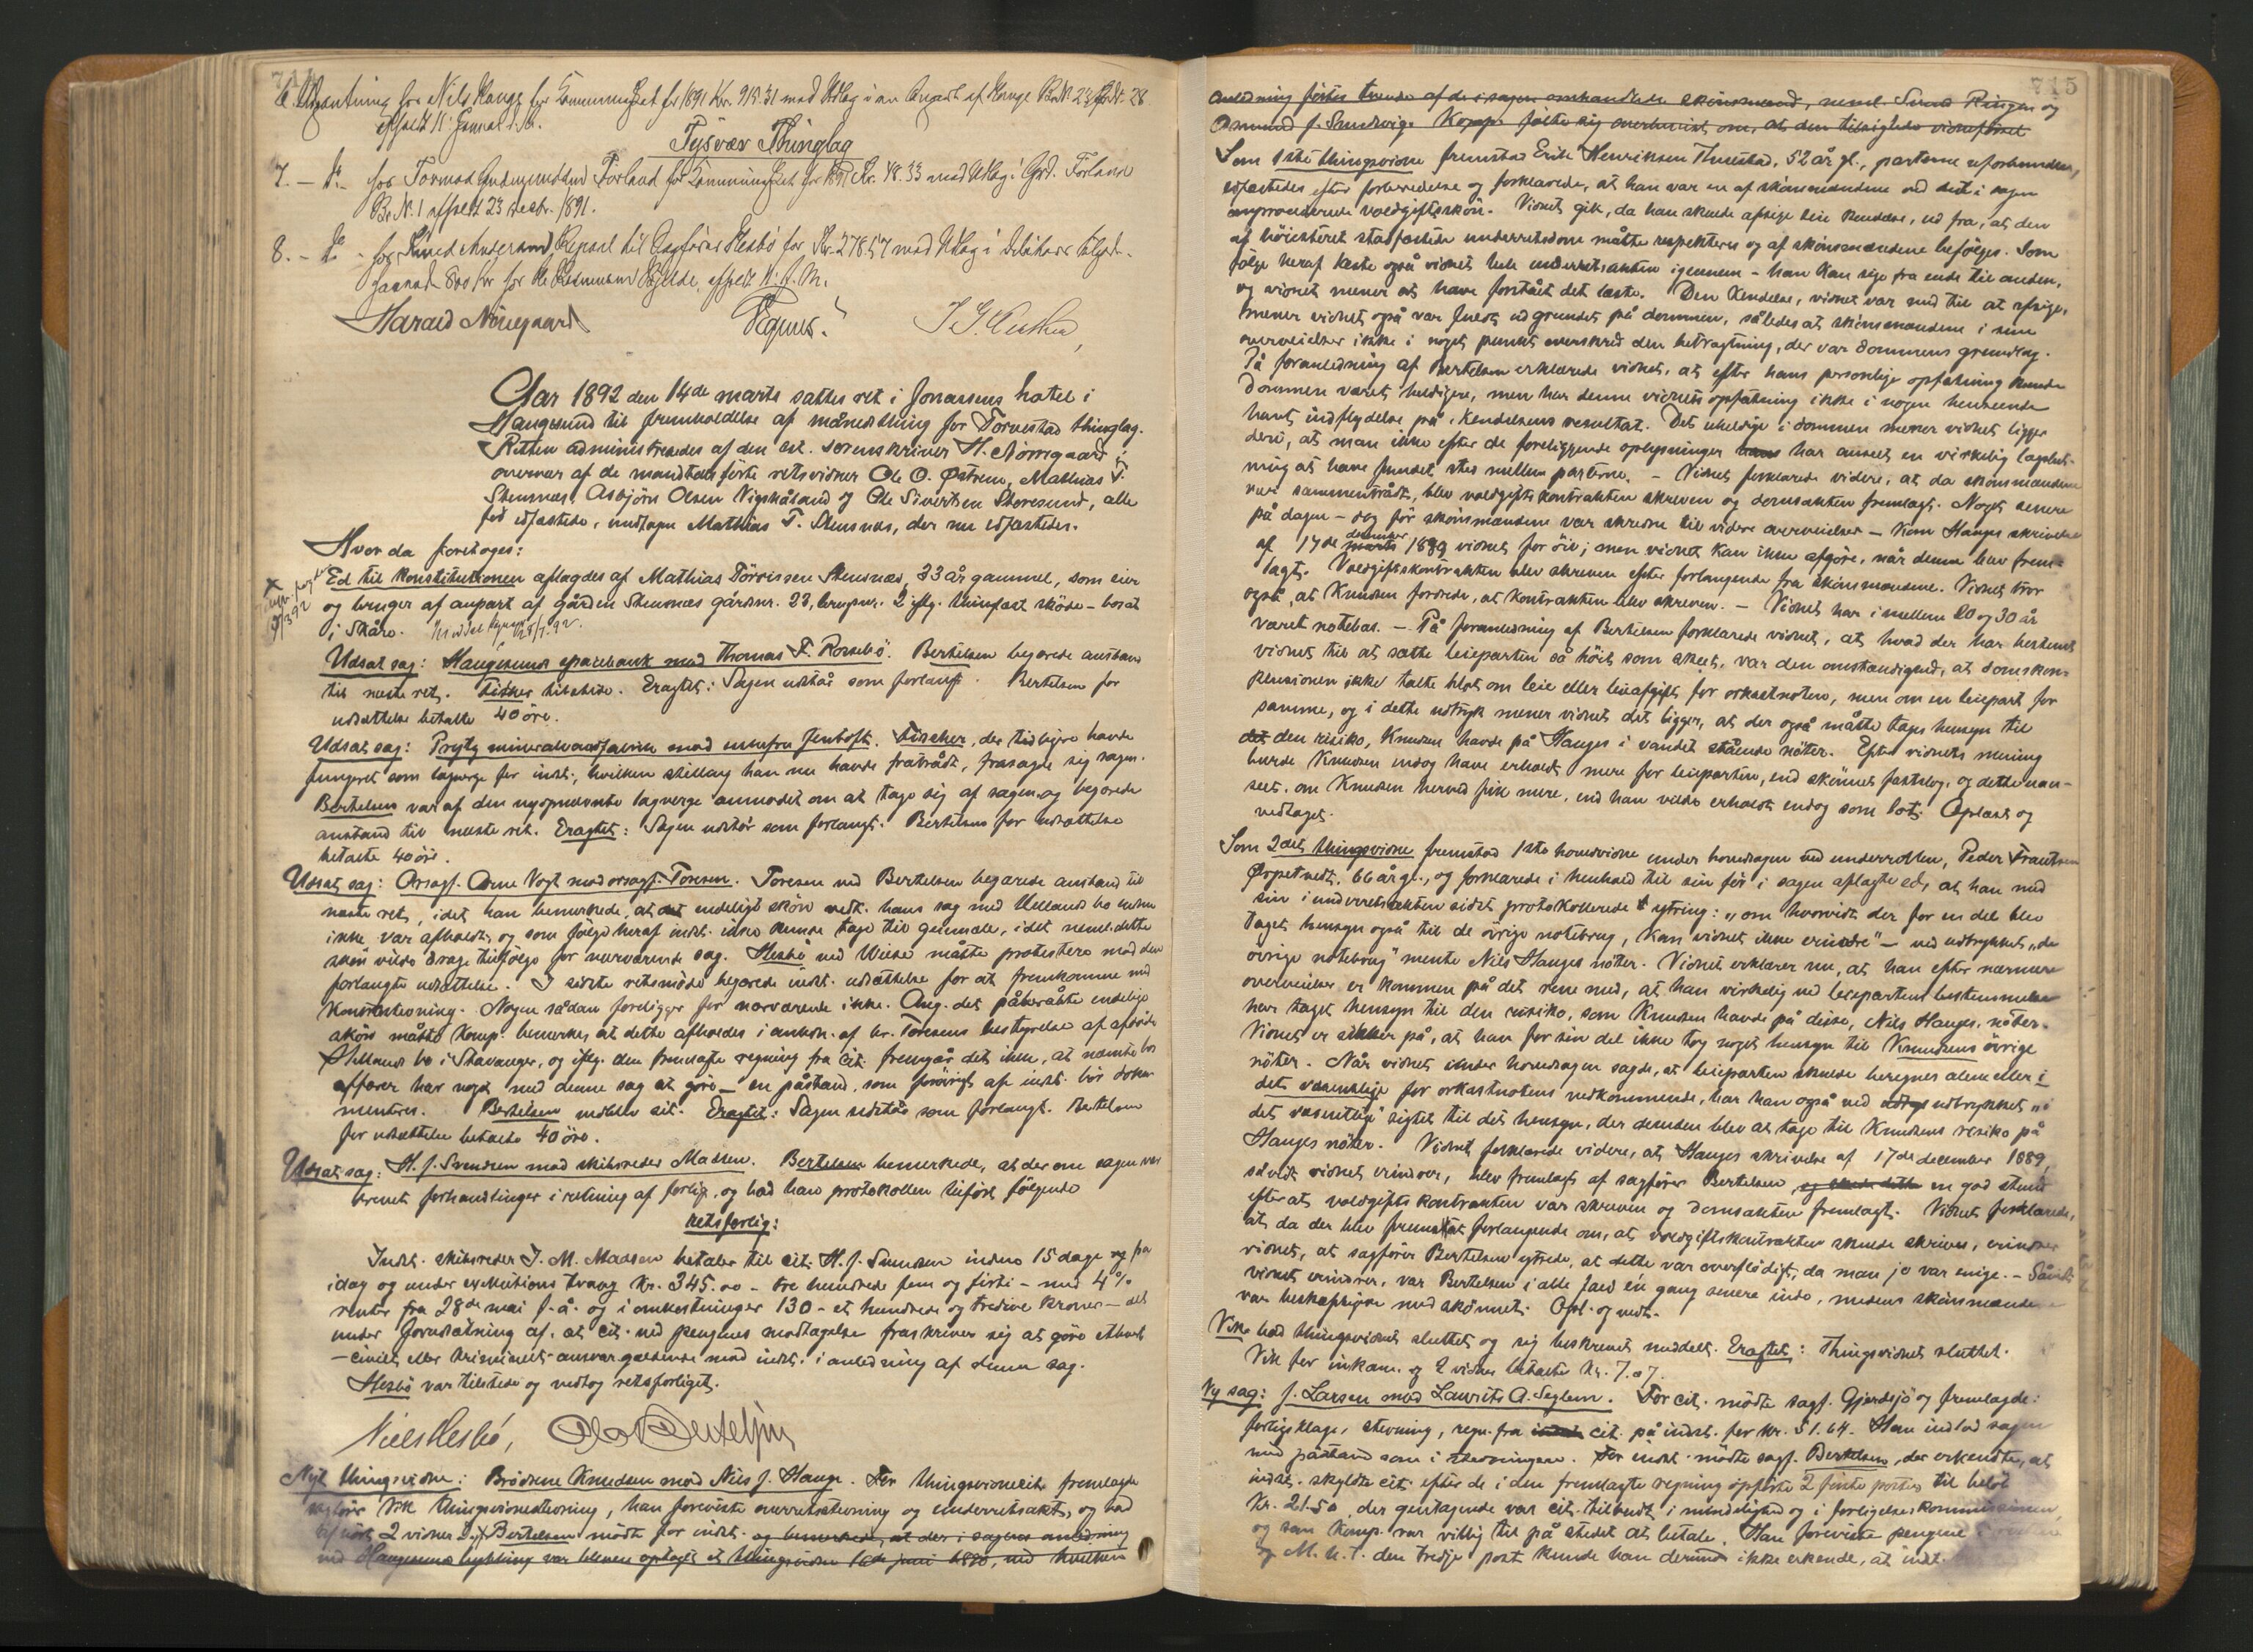 714
6. Udpantning hos Nils Hauge for Kommuneskat for 1891 Kr. 915.31 med Udlag i en Anpart af Hauge Br.N. 23
Tysvær Thinglag
7. – Do – hos Tormod Gudmundsen Førland for Kommuneskat for 1891 Kr. 48.33 med Udlag i Grd. Førland
Br.N. 1 afholdt 23 decbr. 1891.
8. – Do – hos Knud Andersen til Sagfører Hesbø for Kr. 278.57 med Udlag i Debitors
Harald Nörregaard
Gar 1892 den 14de marts sattes ret i Jonassens hotel i
Haugesund til fremholdelse af månedsthing for Torvestad thinglag.
Retten administreredes af den ed. sorenskriver H. Nörregaard i
overvær af de mandtalsförte retsvidner Ole O. Østrem, Mathias T.
Stensnæs, Asbjörn Olsen Vigskåland og Ole Sivertsen Storesund, alle
för edfæstede, undtagen Mathias T. Stensnæs, der nu edfæstedes.
Hvorda foretoges:
Ed til konstitutionen aflagdes af Mathias Törrissen Stensnæs, 33 år gammel, som eier
og bruger af anpart af gården Stensnæs gårdsnr. 23, brugsnr. 2 iflg. thinglæst sköde – bosat
i Skåre.
Udsat sag: Haugesunds sparebank mod Thomas T. Rossebö. Bertelsen begærede anstand
til næste ret. tilstede. Eragtet: Sagen udstår som forlangt. Bertelsen for
udsættelse betalte 40 öre.
Udsat sag: mineralvandfabrik mod Jentoft. Fischer, der tidligere havde
fungeret som lagværge for indst., hvilken stilling han nu havde fratrådt, frasagde sig sagen.
Bertelsen var af den nyopnævnte lagverge anmodet om at tage sig af sagen og begærede
anstand til næste ret. Eragtet: Sagen udstår som forlangt. Bertelsen for udsættelse
betalte 40 öre.
Udsat sag: Orsagf. Arne Vogt mod orsagf. Toresen. Toresen ved Bertelsen begærede anstand til
næste ret, idet han bemærkede, at endeligt skön vedk. hans sag med Utlands bo endnu
ikke var afholdt, og som fölge heraf indst. ikke kunde tage til genmæle, idet neml. dette
skön vilde drage tilfölge for nærværende sag. Hesbö ved Wiese måtte protestere mod den
forlangte udsættelse. I sidste retsmöde begærede indst. udsættelse for at fremkomme med
Kontrastevning. Nogen sådan foreligger for nærværende ikke. Ang. det påberåbte endelige
skön måtte komp. bemærke, at dette afholdes i anledn. af hr. Toresens bestyrelse af afdöde
bo i Stavanger, og iflg. den fremlagte regning fra cit. fremgår det ikke, at nævnte bos
affærer har noget med denne sag at göre – en påstand, som forövrigt af indst. bör doku-
menteres. Bertelsen endblev sit. Eragtet: Sagen udstår som forlangt. Bertelsen
for udsættelse betalte 40 öre.
Udsat sag: H. J. Svendsen mod skibsreder Madsen. Bertelsen bemærkede, at der om sagen var
brevet forhandlinger i retning af forlig, og bad han protokollen tilfört följende
retsforlig:
Indst. skibsreder J. M. Madsen betaler til cit. H. J. Svendsen inden 15 dage og fra
idag og under exekutions tvang Kr. 345.00 – tre hundrede fem og firti – med 4%
renter fra 28de mai f. å. og i omkostninger 130 – et hundrede og tredive kroner – det
under forudsætning af, at cit. ved pengenes modtagelse fraskriver sig at göre ethvert
– civilt eller kriminelt – ansvar gældende mod indst. i anledning af denne sag.
Hesbö var tilstede og vedtog retsforliget.
Niels Hesbö, Ole Bertelsen
Nyt thingsvidne: Brödrene Knudsen mod Nils J. Hauge. For thingsvidnecit. fremlagde
sagförer Vik thingsvidnestevning, han foreviste overretsstevning og underretsakt, og bad
2 vidner Bertelsen mödte for indst. og bemærkede, at der i sagens anledning
ved Haugesunds bything var bleven optaget et thingsvidne 16de juni 1890, ved hvilken
715
anledning förtes tvende af de i sagen omhandlede skönsmænd, neml. Svend Ringen og
Som 1ste thingsvidne fremstod Erik Henriksen Thuestad, 52 år gl., parterne uforbunden,
edfæstedes efter forberedelse og forklarede, at han var en af skönsmændene ved det i sagen
voldgiftsskön. Vidnet gik, da han skulde afsige sin kendelse, ud fra, at den
af höiesteret stadfæstede underretsdom måtte respekteres og af skönsmændene befölges. Som
fölge heraf læste også vidnet hele underretsakten igennem – han kan sige fra ende til anden,
og vidnet mener at have forstået det læste. Den kendelse, vidnet var med til at afsige,
mener vidnet også var fuldt ud grundet på dommen, således at skönsmændene i sine
overveielser ikke i noget punkt overskred den betragtning, der var dommens grundlag.
På foranledning af Bertelsen erklærede vidnet, at efter hans personlige opfatning kunde
dommen været heldigere, men har denne vidnets opfatning ikke i nogen henseende
havt indflydelse på kendelsens resultat. Det uheldige i dommen mener vidnet ligger
deri, at man ikke efter de foreliggende oplysninger har anseet en virkelig lagslut-
ning at have fundet sted mellem parterne. – Vidnet forklarede videre, at da skönsmændene
var sammentrådt, blev voldgiftskontrakten skreven og domsakten fremlagt. Noget senere
på dagen – dog för skönsmændene var skredne til videre overveielser – kom Hauges skrivelse
af 17de december 1889 vidnet for öie; men vidnet kan ikke afgöre, når denne blev frem-
lagt. Voldgiftskontrakten blev skreven efter forlangende fra skönsmændene. Vidnet tror
også, at Knudsen fordrede, at kontrakten blev skreven. – Vidnet har imellem 20 og 30 år
været notebas. – På foranledning af Bertelsen forklarede vidnet, at hvad der har bestemt
vidnet til at sætte leieparten så höit som skeet, var den omstændighed, at domskon-
klusionen ikke talte blot om leie eller leieafgift for orkastnoten, men om en leiepart for
samme, og i dette udtryk mener vidnet det ligger, at der også måtte tages hensyn til
den risiko, Knudsen havde på Hauges i vandet stående nöter. Efter vidnets mening
burde Knudsen endog have erholdt mere for leieparten, end skönnet fastslog, og dette uan-
seet, om Knudsen herved fik mere, end han vilde erholdt endog som lot. Oplæst og
vedtaget.
Som 2det thingsvidne fremstod 1ste hovedvidne under hovedsagen ved underretten, Peder Frantsen
66 år gl., og forklarede i henhold til sin för i sagen aflagte ed, at han med
sin i underretsakten sidst protokollerede ytring: „om hvorvidt der for en del blev
taget hensyn også til de övrige notebrug, kan vidnet ikke erindre“ – ved udtrykket „de
övrige notebrug“ mente Nils Hauges nöter. Vidnet erklærer nu, at han efter nærmere
overveielse er kommen på det rene med, at han virkelig ved leiepartens bestemmelse
har taget hensyn til den risiko, som Knudsen havde på disse, Nils Hauges, nöter.
Vidnet er sikker på, at han for sin del ikke tog noget hensyn til Knudsens övrige
nöter. Når vidnet under hovedsagen sagde, at leieparten skulde beregnes alene eller i
det væsentlige for orkastnotens vedkommende, har han også ved udtrykket „i
det væsentlige“ sigtet til det hensyn, der desuden blev at tage til Knudsens risiko på
Hauges nöter. Vidnet forklarede videre, at Hauges skrivelse af 17de december 1889,
såvidt vidnet erindrer, blev fremlagt af sagförer Bertelsen en god stund
efterat voldgiftskontrakten var skreven og domsakten fremlagt. Vidnet forklarede,
at, da der blev fremsat forlangende om, at voldgiftskontrakten skulde skrives, erindrer
vidnet, at sagförer Bertelsen ytrede, at dette var overflödigt, da man jo var enige. – Såvidt
vidnet erindrer, var Bertelsen i alle fald én gang senere inde, medens skönsmændene
var beskæftigede med skönnet. Opl. og vedt.
Vik bad thingsvidnet sluttet og sig beskrevet meddelt. Eragtet: Thingsvidnet sluttet.
Vik for inkam. og 2 vidner betalte Kr. 7.07.
Ny sag: J. Larsen mod Laurits A. Seglem. For cit. mödte sagf. Gjerdsjö og fremlagde:
forligsklage, stevning, regn. fra cit. på indst. for Kr. 51.64. Han indlod sagen
med påstand som i stevningen. For indst. mödte sagf. Bertelsen, der erkendte, at
indst. skyldte cit. efter de i den fremlagte regning opförte 2 første poster til belöb
Kr. 21.50, der gentagende var cit. tilbudt i mindelighed og i forligelseskommissionen,
og som komp. var villig til på stedet at betale. Han foreviste pengene
M. h. t. den tredje post kunde han derimod ikke erkende, at indst.